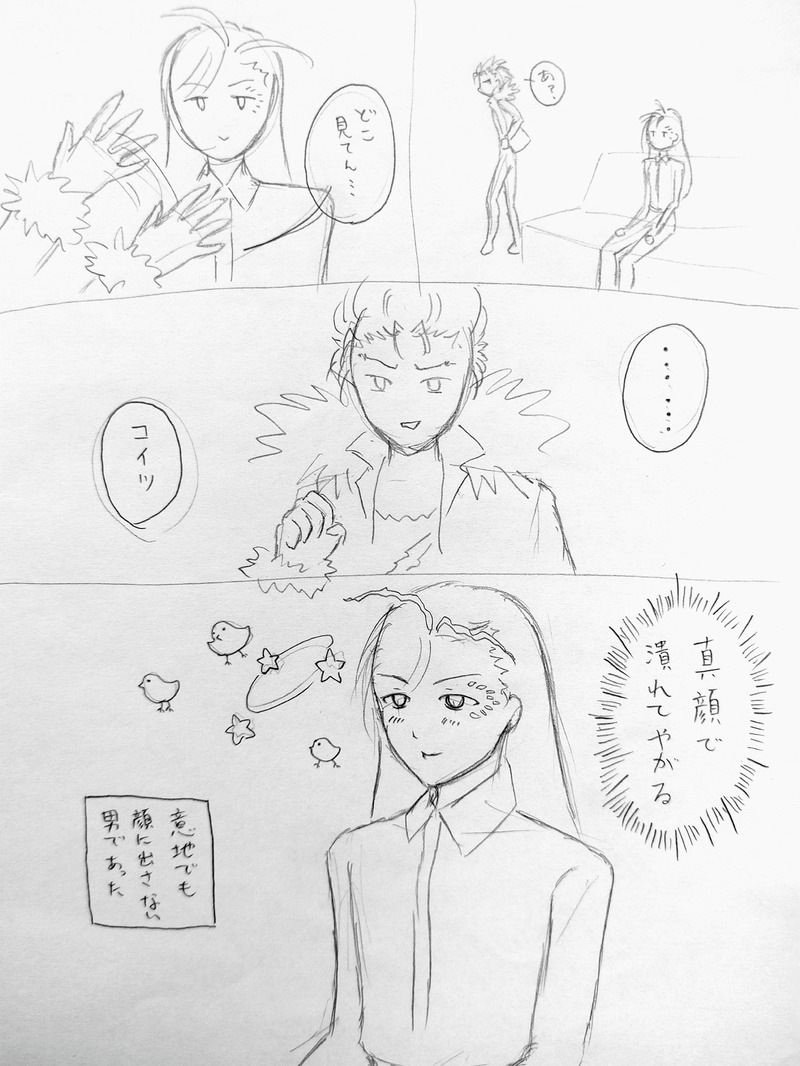 あ？
どこ
見てん…
……
コイツ
真顔で
潰れてやがる
意地でも
顔に出さない
男であった